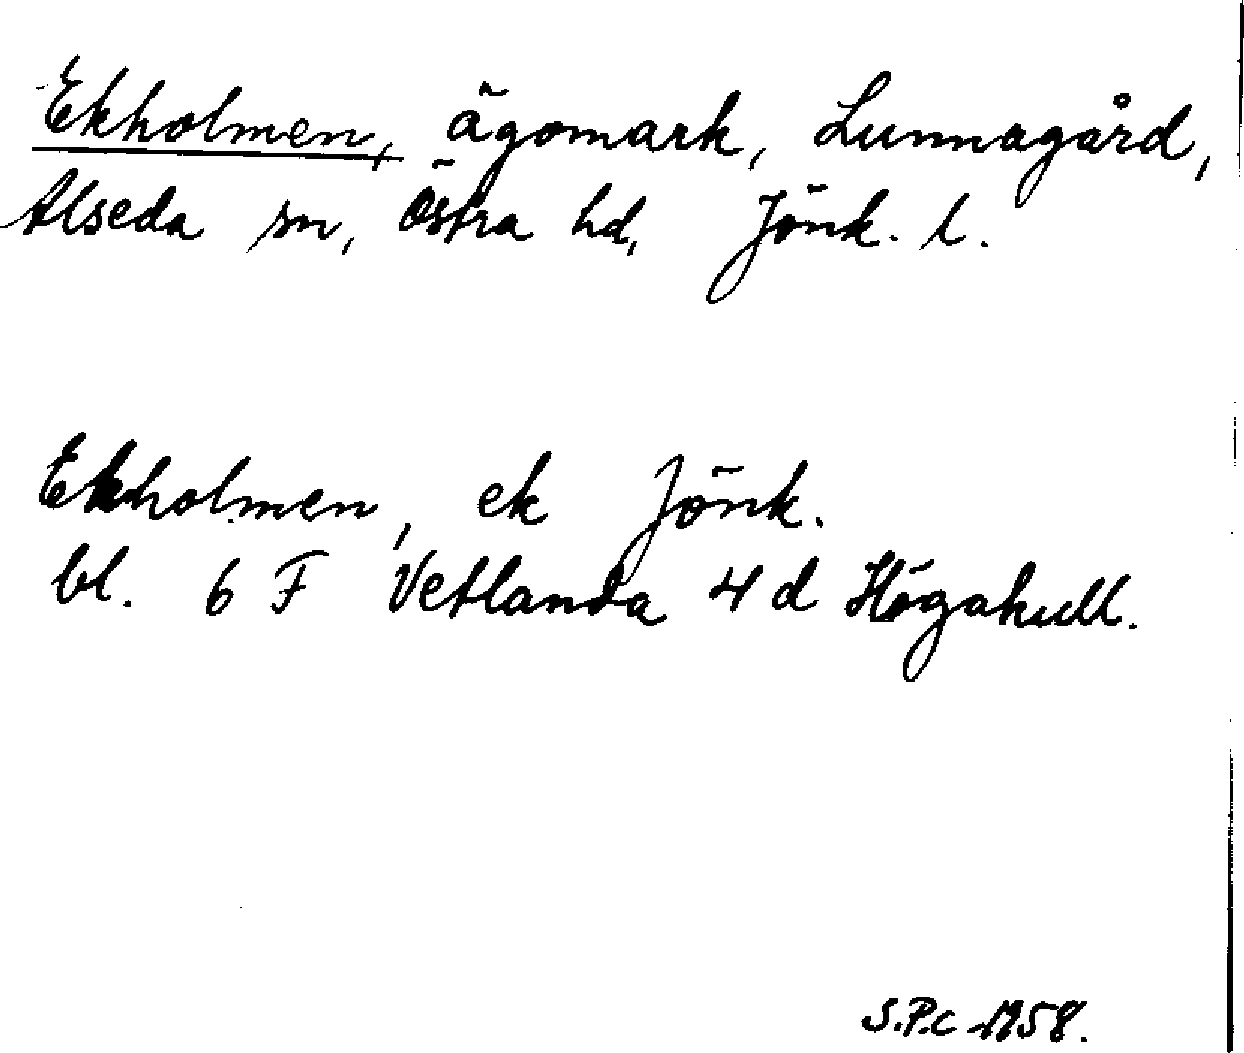 Ekholmen, ägomark, Lunnagård,
Alseda sn, Östra hd, Jönk. l.
Ekholmen, ek Jönk.
bl. 6 F Vetlanda 4 d Högakull.
S.P.c 1958.